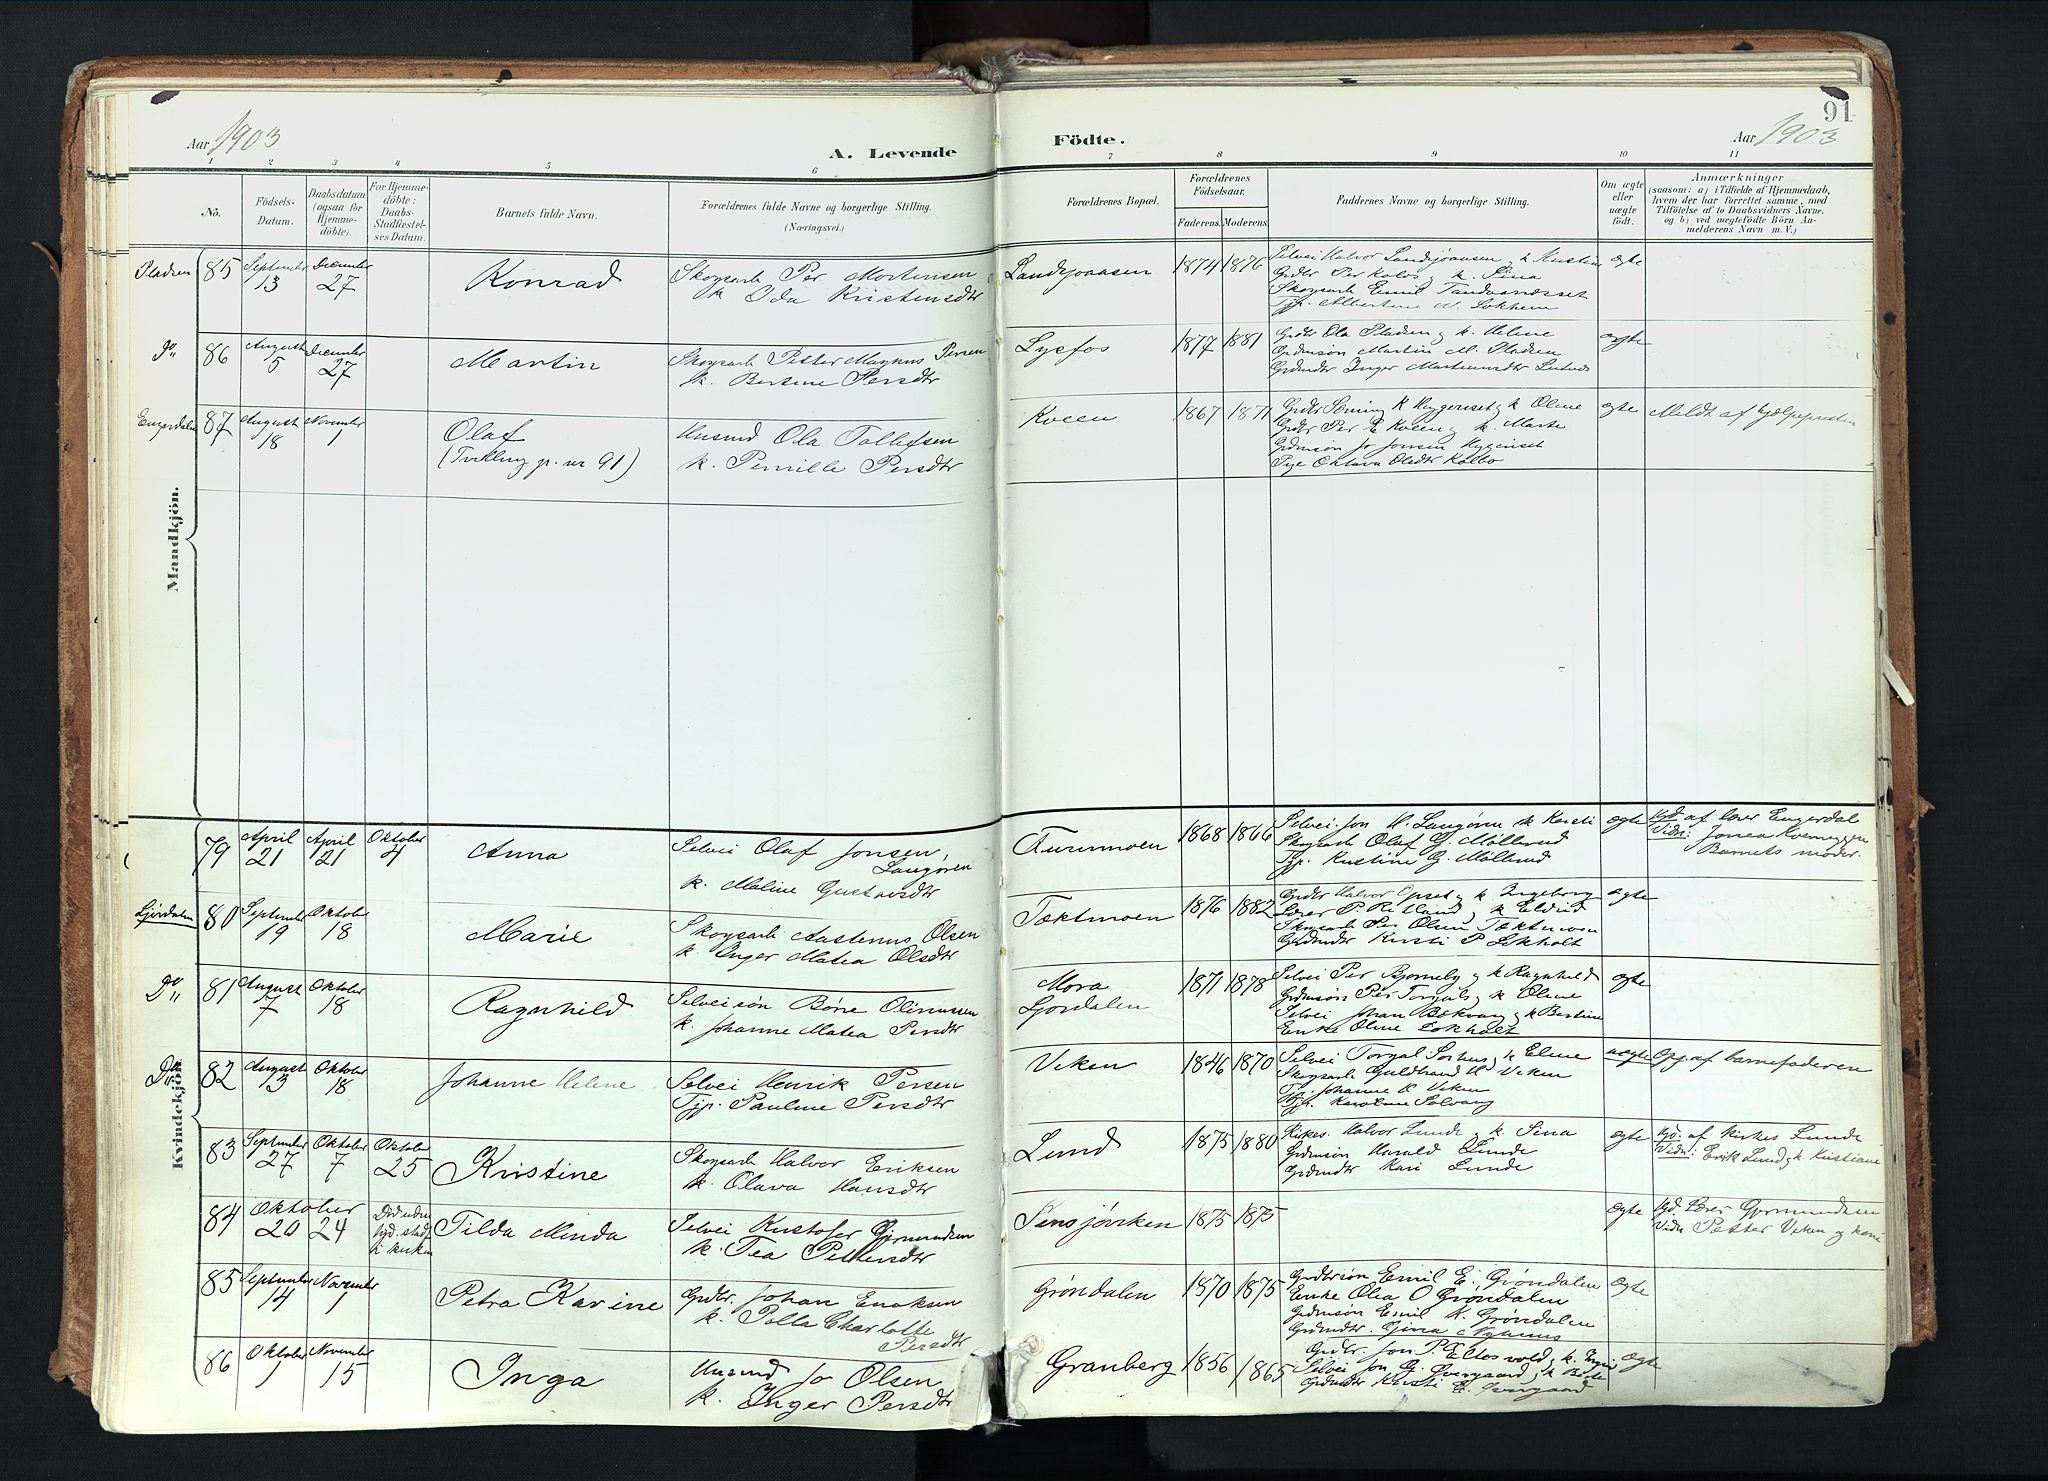 91
Aar 1903
A. Levende
Födte.
Aar 1903
1 2 3 4 5 6 7 8 9 10 11
No.
Födsels-Datum.
Daabsdatum (ogsaa for Hjemmedöbte).
For Hjemmedöbte: Daabs-Stadfæstelses Datum.
Barnets fulde Navn.
Forældrenes fulde Navne og borgerlige Stilling.
(Næringsvei.)
Forældrenes Bopæl.
Forældrenes Födselsaar.
Faderens. Moderens.
Faddernes Navne og borgerlige Stilling.
Om ægte eller uægte födt.
Anmærkninger
(saasom: a) i Tilfælde af Hjemmedaab, hvem der har forrettet samme, med Tilföielse af to Daabsvidners Navne. og b) ved uægtefödte Börn Anmelderens Navn m. V.)
Mandkjön.
Pladsen 85 September 13 December 27 Konrad
Skogsarb Per Mortensen
k. Ida Kristensdtr
Landsjøaasen 1874 1876
Selvei Halvor Landsjøaasen k Kristine
Grdbr Per Kolos k. Sina
Skogsarb Emil
Albertine
ægte
Do 86 August 5 December 27 Martin
Skogsarb Petter Magnus Persen
k. Bertine Persdtr
Lycfos 1877 1881
Grdbr Ola Pladsen k. Helene
Grdmsøn Martin M. Pladsen
Grdmdtr Inger
ægte
Engerdalen 87 August 18 November 1 Olaf
(Tvilling p. nr 91)
Husmd Ola Tollefsen
k. Pernille Persdtr
Kveen 1867 1871
Grdbr k Oline
Grdbr Per E. Kveen k. Marte
Grdmsøn Jo Jonsen
Pige Oktava Olsdtr Kolbo
ægte
Meldt af hjælpepresten
Kvindekjön
79 April 21 April 21 Oktober 4 Anna
Selvei Olaf Jonsen, Langøren
k. Maline Gustavsdtr
Furumoen 1868 1866
Selvei Jon H. Langøren k Kersti
Skogsarb Olaf G. Möllerud
Tjp. Kristine G. Möllerud
ægte
Hjd. af lærer Engerdal
Vidn: Jonea
Barnets moder.
Ljørdalen 80 September 19 Oktober 18 Marie
Skogsarb Aastenus Olsen
k. Inger Matea Olsdtr
Tæktmoen 1876 1882
Grdbr Halvor Opset k Ingeborg
Lærer P. Ritland, k Eldrid
Skogsarb Per Olsen Tæktmoen
Grdmdtr Kersti P. Lekholt
ægte
Do 81 August 7 Oktober 18 Ragnhild
Selveisøn Børre Olimussen
k. Johanne Matea Persdtr
Mora
Ljordalen 1871 1878
Selvei Per Bjørneby k Ragnhild
Grdmsøn Per k Oline
Selvei Johan Bækvang k Bertine
Enke Oline Lekholt
ægte
Do 82 August 13 Oktober 18 Johanne Helene
Selvei Henrik Persen
Tjp. Pauline Persdtr
Viken 1846 1870
Selvei Torgal k Eline
Skogsarb Guldbrand H Viken
Tjp. Johanne H. Viken
Karoline Solvang
uægte
Opg. af barnefaderen
83 September 27 Oktober 7 Oktober 25 Kristine
Skogsarb Halvor Eriksen
k. Olava Hansdtr
Lund 1875 1880
Kirkes. Halvor Lunde k. Sina
Grdmsøn Harald Lunde
Grdmdtr Kari Lunde
ægte
Hjd. af Kirkes Lunde
Vidn: Erik Lund k Kristiane
84 Oktober 20 24 Död uden hjd. stadf. i kirken Tilda Minda
Selvei Kristofer Gjermundsen
k. Tea Pettersdtr
Sensjøviken 1875 1875
ægte
Hjd. Lærer Gjermundsen
Vidn Petter Viken og kone
85 September 14 November 1 Petra Karine
Grdbr. Johan Enoksen
k. Polla Charlotte Persdtr
Grøndalen 1870 1875
Grdbrsøn Emil E. Grøndalen
Enke Olia O Grøndalen
Grdmsøn Emil K. Grøndalen
Grdmdtr. Gina Nyhuus
ægte
86 Oktober 1 November 15 Inga
Husmd Jo Olsen
k. Inger Persdtr
Granberg 1856 1865
Grdbr. Jon P. Elvsvold k. Ingrid
Selvei Jon G. Øvergaard k Berte
Grdmdtr Kersti E. Øvergaard
ægte